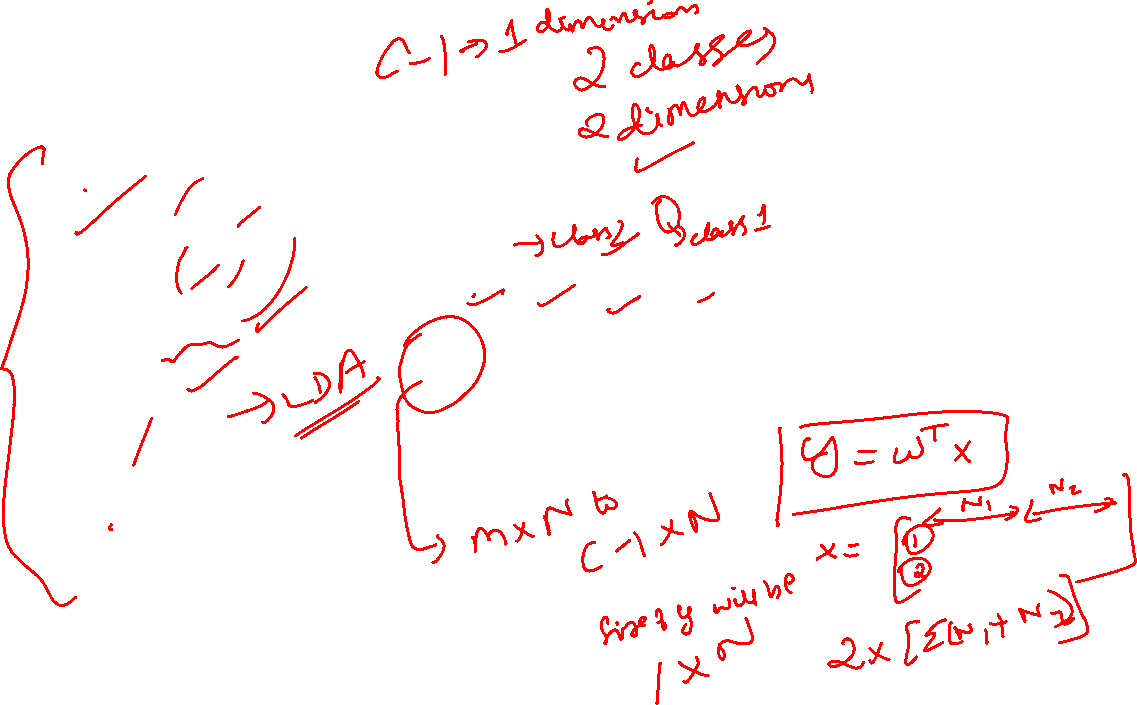 C-1 → 1 dimension
2 classes
2 dimensions
→ class2 class 1
→ LDA
y = w^T x
m x N to
C-1 x N
x = 1 N1 N2
2
Size of y will be
1 x N
2 x [Σ(N1 + N2)]